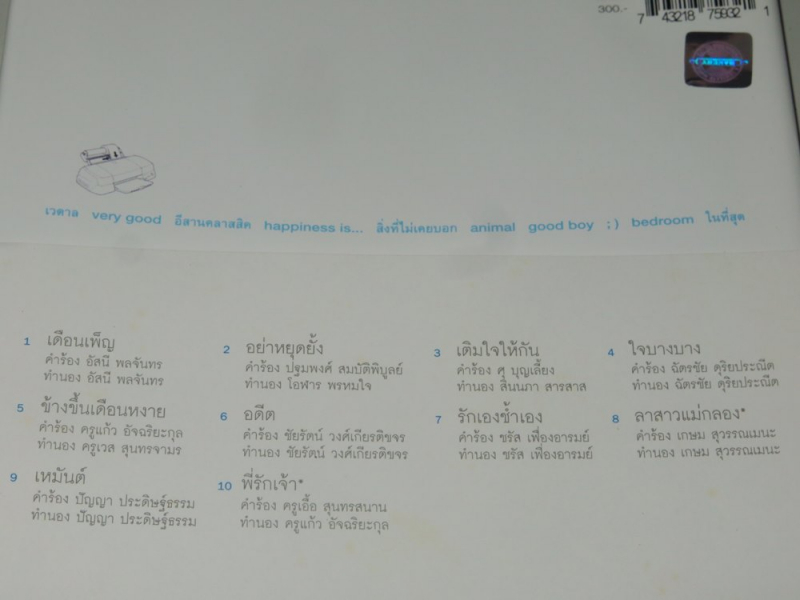 300.-
7 43218 75932 1
เวตาล very good อีสานคลาสสิค happiness is... สิ่งที่ไม่เคยบอก animal good boy ;) bedroom ในที่สุด
1 เดือนเพ็ญ
คำร้อง อัสนี พลจันทร
ทำนอง อัสนี พลจันทร
2 อย่าหยุดยั้ง
คำร้อง ปฐมพงศ์ สมบัติพิบูลย์
ทำนอง โอฬาร พรหมใจ
3 เติมใจให้กัน
คำร้อง ศุ บุญเลี้ยง
ทำนอง สินนภา สารสาส
4 ใจบางบาง
คำร้อง ฉัตรชัย ดุริยประณีต
ทำนอง ฉัตรชัย ดุริยประณีต
5 ข้างขึ้นเดือนหงาย
คำร้อง ครูแก้ว อัจฉริยะกุล
ทำนอง ครูเวส สุนทรจามร
6 อดีต
คำร้อง ชัยรัตน์ วงศ์เกียรติขจร
ทำนอง ชัยรัตน์ วงศ์เกียรติขจร
7 รักเองช้ำเอง
คำร้อง ชรัส เฟื่องอารมย์
ทำนอง ชรัส เฟื่องอารมย์
8 ลาสาวแม่กลอง*
คำร้อง เกษม สุวรรณเมนะ
ทำนอง เกษม สุวรรณเมนะ
9 เหมันต์
คำร้อง ปัญญา ประดิษฐ์ธรรม
ทำนอง ปัญญา ประดิษฐ์ธรรม
10 พี่รักเจ้า*
คำร้อง ครูเอื้อ สุนทรสนาน
ทำนอง ครูแก้ว อัจฉริยะกุล